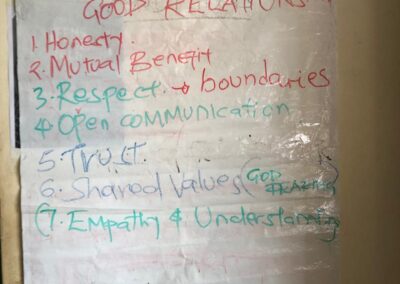 GOOD RELATIONS
1. Honesty.
2. Mutual Benefit
3. Respect. → boundaries
4. Open COMMUNICATION
5. TRUST.
6. Shared Values (GOD FEARING)
(7. Empathy & Understanning